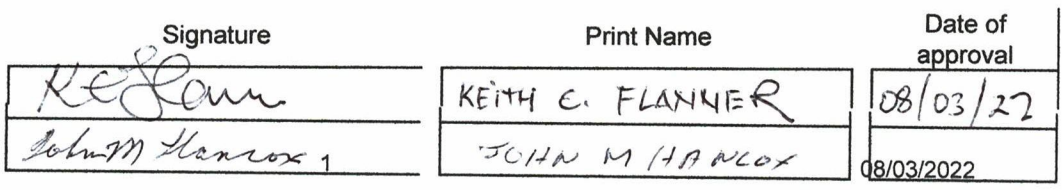 Signature Print Name Date of
approval
KEITH C. FLANNER 08/03/22
John M Hancox 1 JOHN M HANCOX 08/03/2022